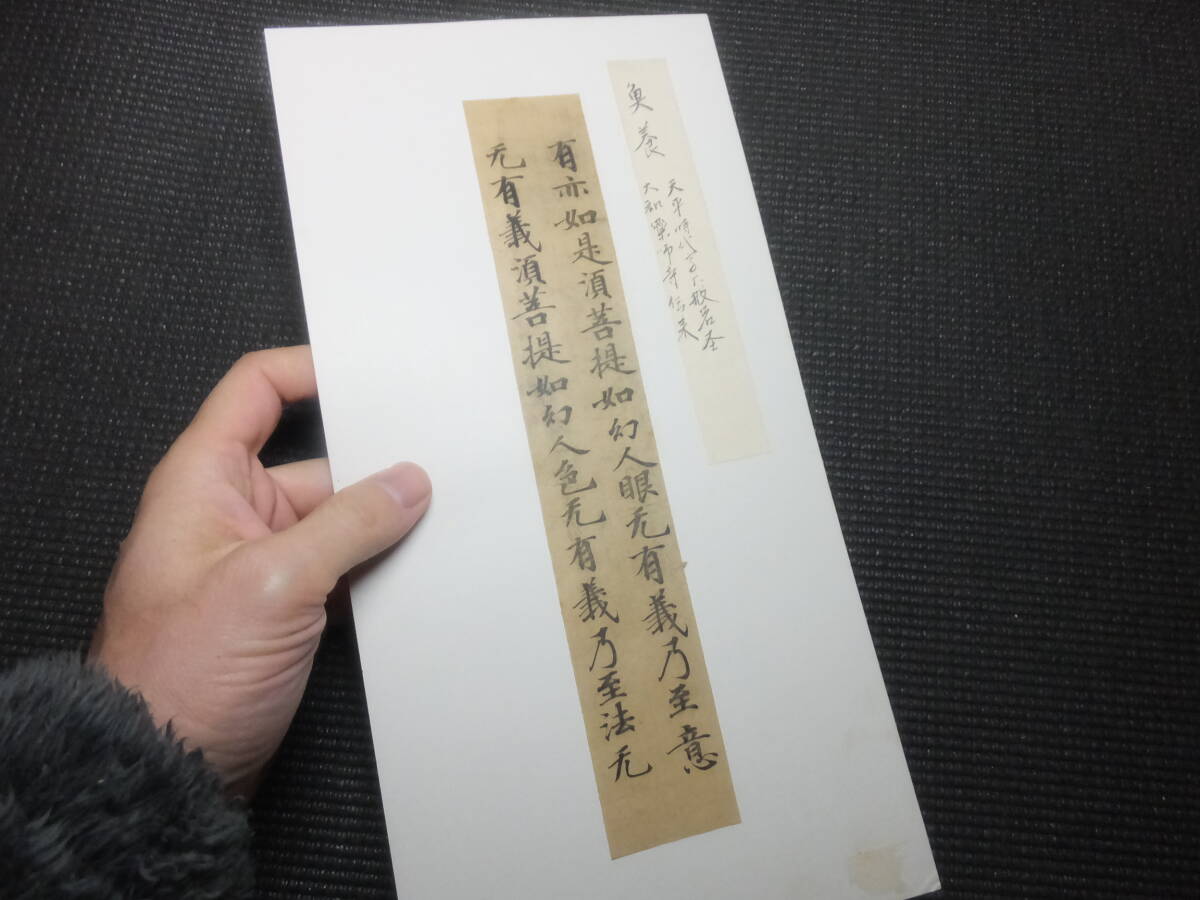 魚養
天平時代 大般若圣
大和藥师寺伝来
有亦如是湏菩提如幻人眼无有義乃至意
无有義湏菩提如幻人色无有義乃至法无